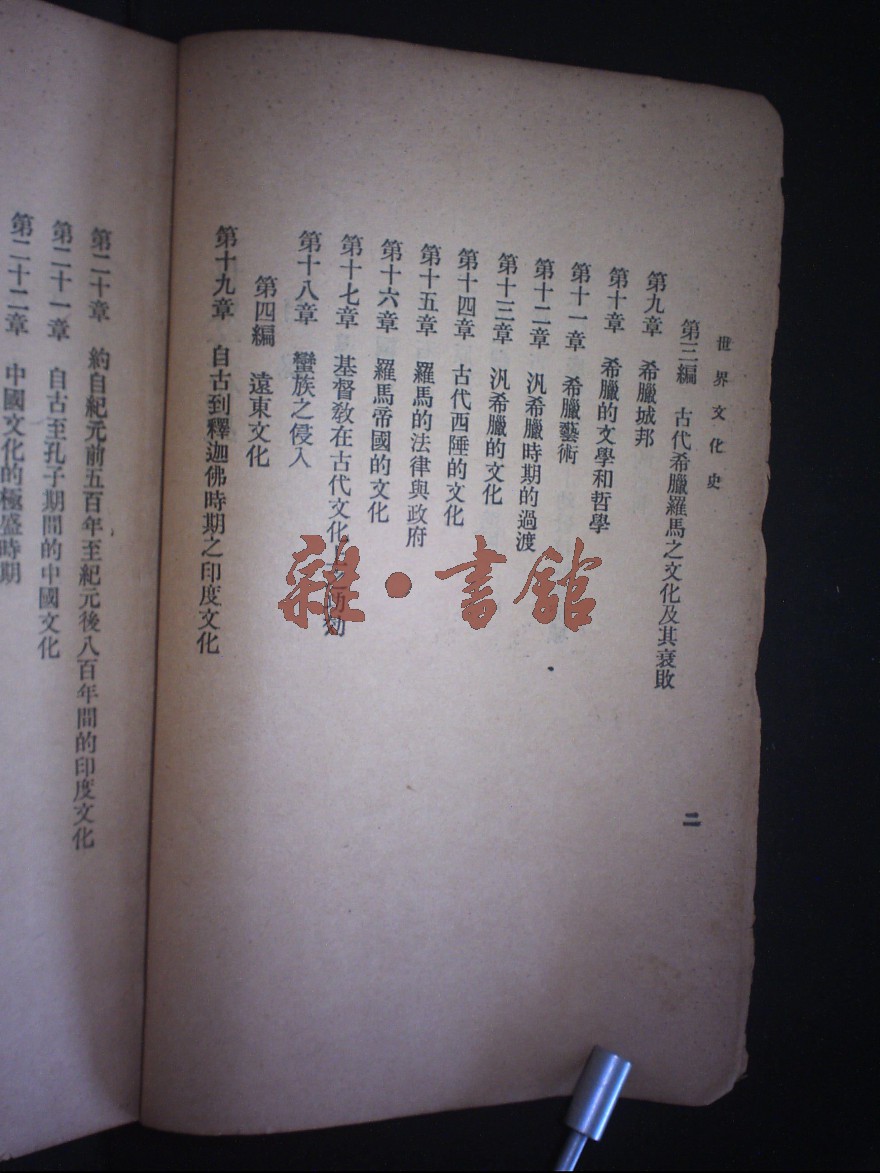 世界文化史
第三編　古代希臘羅馬之文化及其衰敗
第九章　希臘城邦
第十章　希臘的文學和哲學
第十一章　希臘藝術
第十二章　汎希臘時期的過渡
第十三章　汎希臘的文化
第十四章　古代西陲的文化
第十五章　羅馬的法律與政府
第十六章　羅馬帝國的文化
第十七章　基督敎在古代文化上之
第十八章　蠻族之侵入
第四編　遠東文化
第十九章　自古到釋迦佛時期之印度文化
二
第二十章　約自紀元前五百年至紀元後八百年間的印度文化
第二十一章　自古至孔子期間的中國文化
第二十二章　中國文化的極盛時期
雜·書館